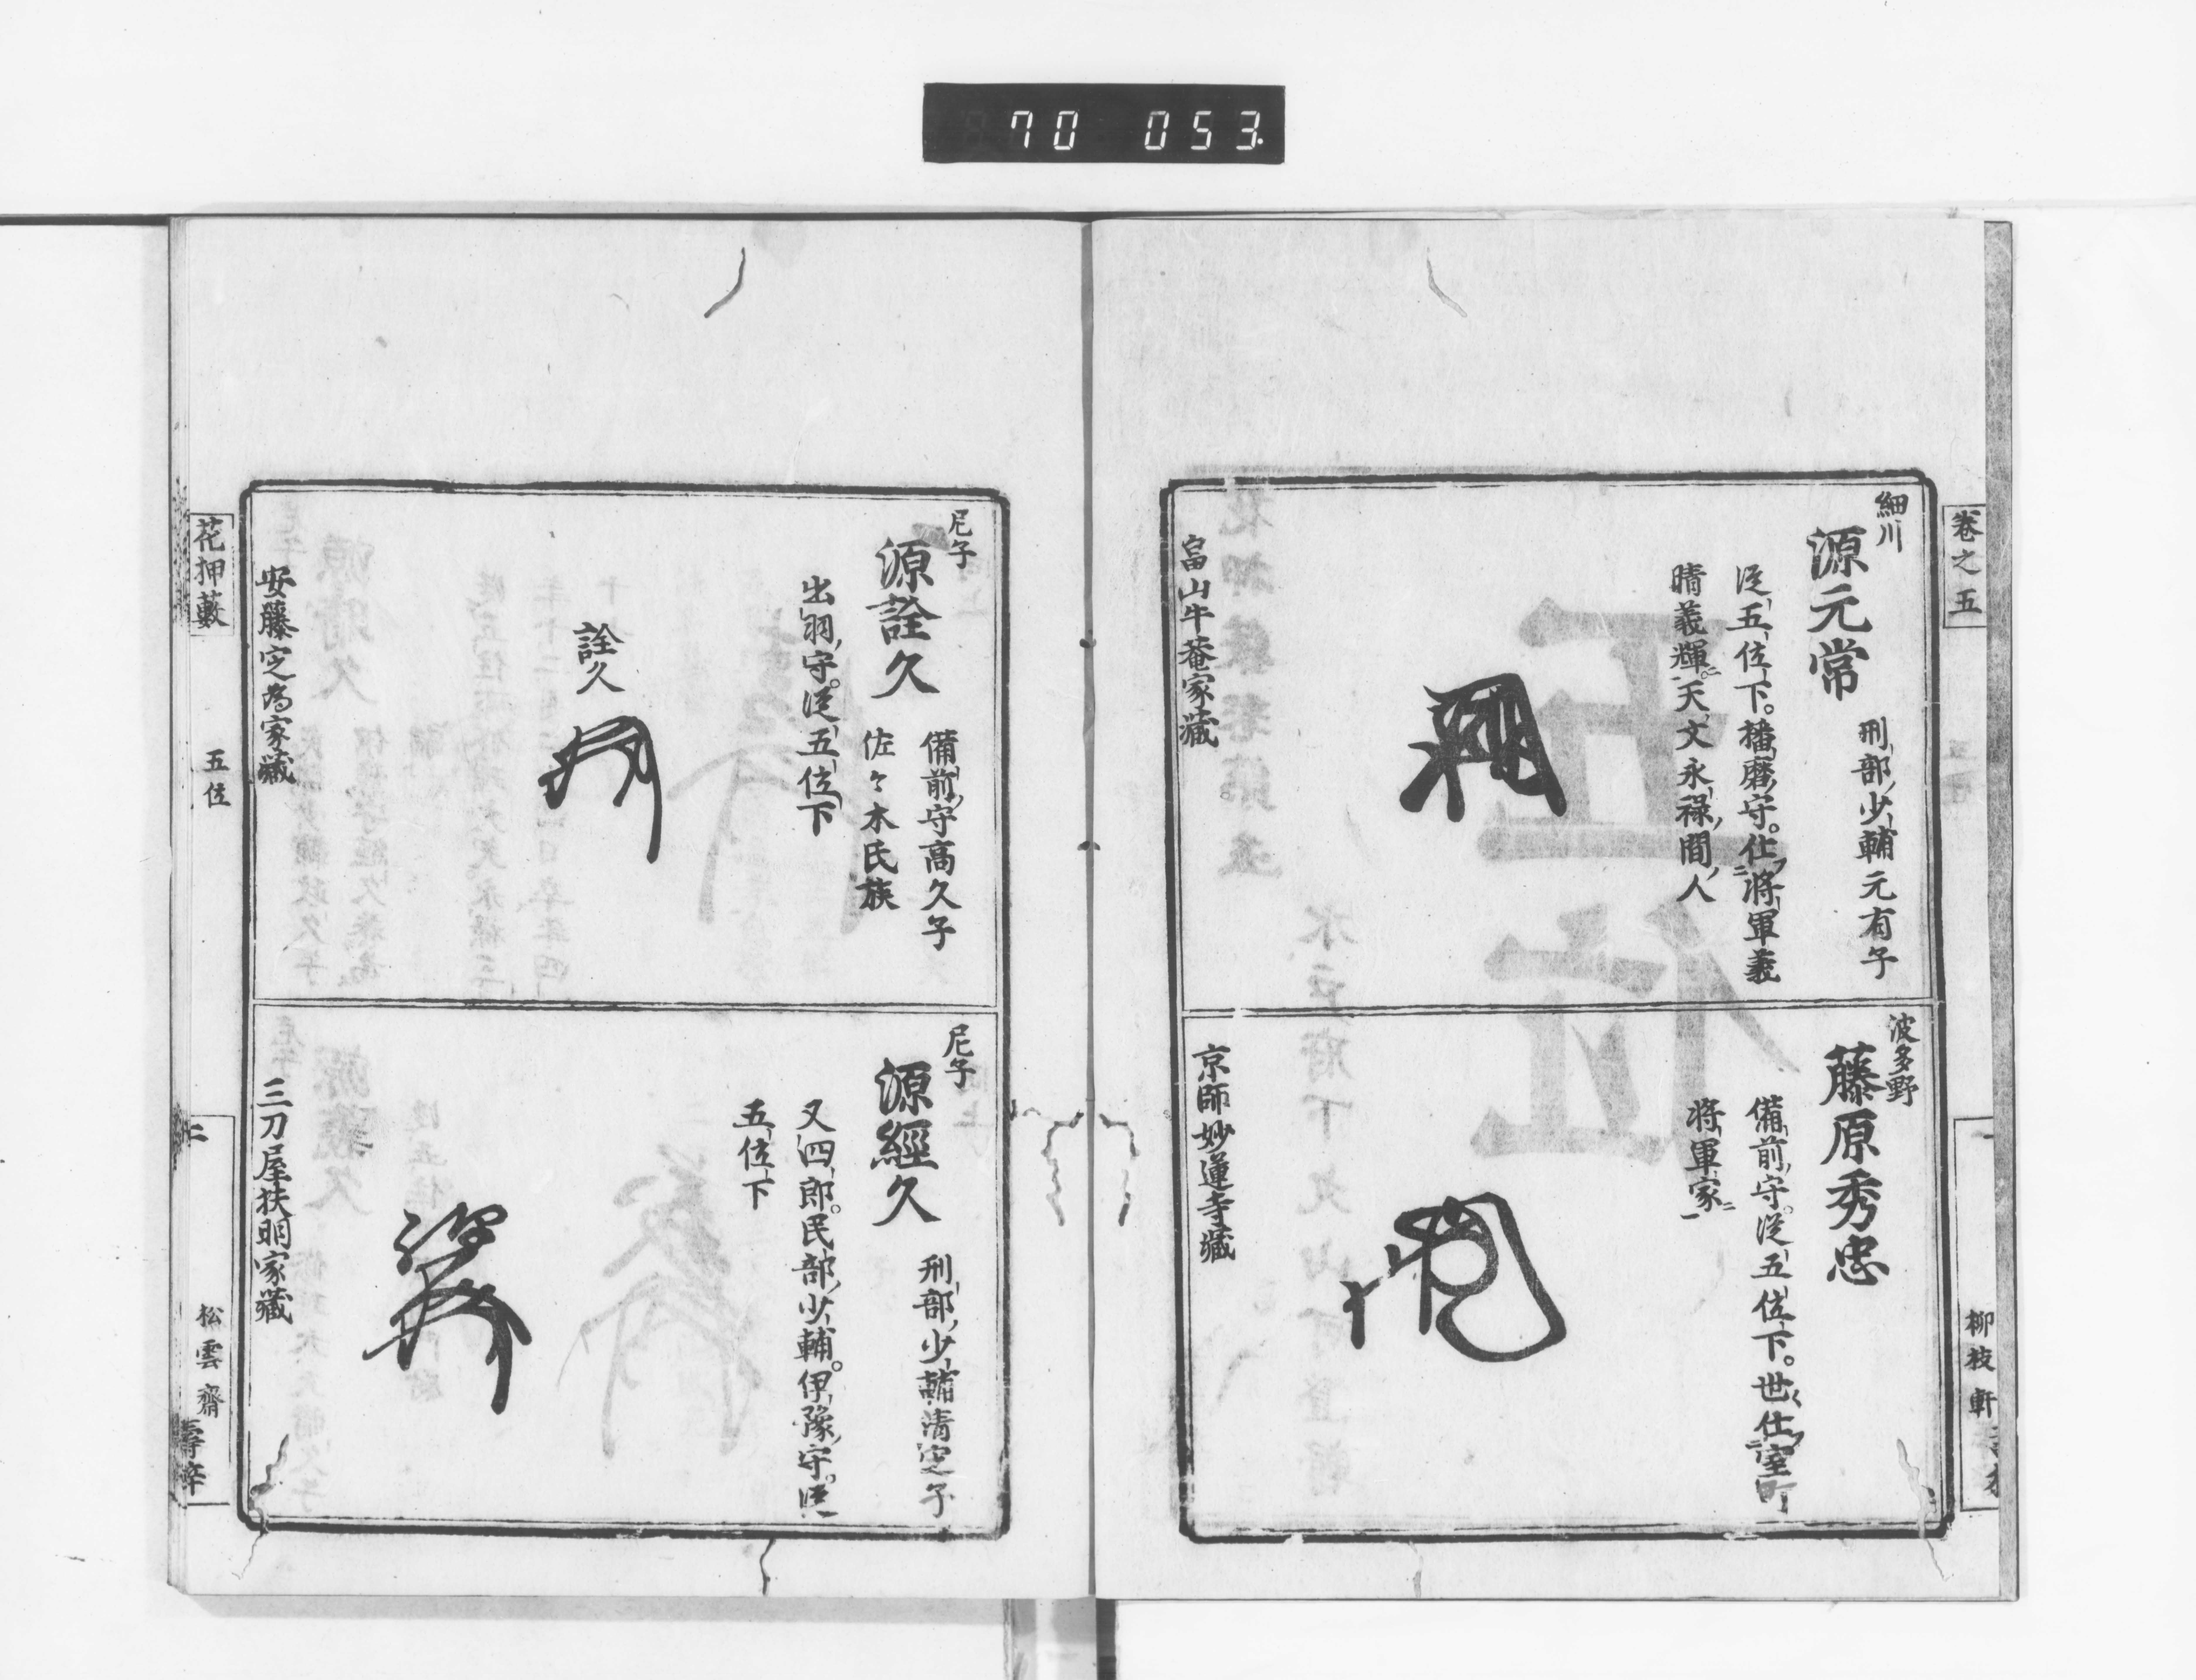 70 053.
卷之五
柳枝軒
細川
源元常
刑部少輔元有子
從五位下。播磨守。仕將軍義
晴義輝。天文永祿間人
畠山牛菴家藏
波多野
藤原秀忠
備前守。從五位下。世仕室町
將軍家
京師妙蓮寺藏
尼子
源詮久
備前守高久子
佐々木氏族
出羽守。從五位下
詮久
安藤定為家藏
尼子
源經久
刑部少輔清定子
又四郎。民部少輔。伊豫守。從
五位下
三刀屋扶明家藏
花押藪
五位
二
松雲齋
壽梓